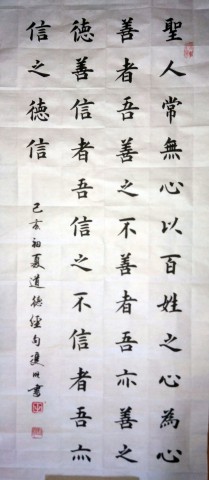 聖人常無心以百姓之心為心
善者吾善之不善者吾亦善之
德善信者吾信之不信者吾亦
信之德信
己亥初夏道德經句書